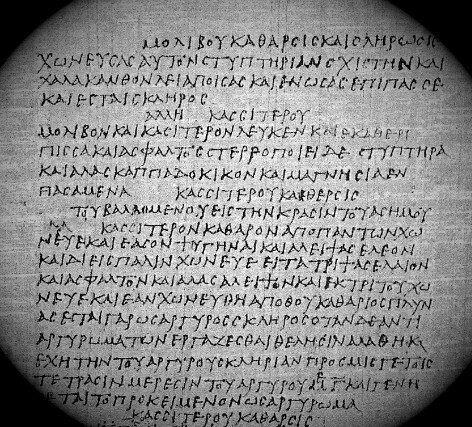 ΜΟΛΙΒΟΥ ΚΑΘΑΡϹΙϹ ΚΑΙ ϹΚΛΗΡΩϹΙϹ
ΧΩΝΕΥϹΑϹ ΑΥΤΟΝ ϹΤΥΠΤΗΡΙΑΝ ϹΧΙϹΤΗΝ ΚΑΙ
ΧΑΛΑΚΑΝΘΟΝ ΛΕΙΑ ΠΟΙϹΑϹ ΚΑΙ ΕΝΩϹΑϹ ΕΠΙΠΑϹϹΕ
ΚΑΙ ΕϹΤΑΙ ϹΚΛΗΡΟϹ
ΑΛΛΗ ΚΑϹϹΙΤΕΡΟΥ
ΜΟΛΙΒΟΝ ΚΑΙ ΚΑϹΙΤΕΡΟΝ ΛΕΥΚΕΝ ΚΑΙ ΕΚΑΘΕΡΙ
ΠΙϹϹΑ ΚΑΙ ΑϹΦΑΛΤΟϹ ϹΤΕΡΕΟΠΟΙΕΙ ΔΕ ϹΤΥΠΤΗΡΑ
ΚΑΙ ΑΛΑϹ ΚΑΠΠΑΔΟΚΙΚΟΝ ΚΑΙ ΜΑΓΝΗϹΙΑ ΕΝ
ΠΑϹΑΜΕΝΑ ΚΑϹϹΙΤΕΡΟΥ ΚΑΘΕΡϹΙϹ
ΤΟΥ ΒΑΛΛΟΜΕΝΟΥ ΕΙϹ ΤΗΝ ΚΡΑϹΙΝ ΤΟΥ ΑϹΗΜΟΥ
ΚΑϹϹΙΤΕΡΟΝ ΚΑΘΑΡΟΝ ΑΠΟ ΠΑΝΤΩΝ ΧΩ
ΝΕΥΕ ΚΑΙ ΕΑϹΟΝ ΨΥΓΗΝΑΙ ΚΑΙ ΑΛΕΙΨΑϹ ΕΛΕΟΝ
ΚΑΙ ΔΙΕΙϹ ΠΑΛΙΝ ΧΩΝΕΥΕ ΕΙΤΑ ΤΡΙΨΑϹ ΕΛΑΙΟΝ
ΚΑΙ ΑϹΦΑΛΤΟΝ ΚΑΙ ΑΛΑϹ ΑΛΕΙΨΟΝ ΚΑΙ ΕΚ ΤΡΙΤΟΥ ΧΩ
ΝΕΥΕ ΚΑΙ ΕΑΝ ΧΩΝΕΥΘΗ ΑΠΟΘΟΥ ΚΑΘΑΡΙΟϹ ΠΛΥΝ
ΑϹ ΕϹΤΑΙ ΓΑΡ ΩϹ ΑΡΓΥΡΟϹ ϹΚΛΗΡΟϹ ΟΤΑΝ ΔΕ ΑΝΤΙ
ΑΡΓΥΡΩΜΑΤΩΝ ΕΡΓΑΖΕϹΘΑΙ ΘΕΛΗϹ ΙΝΑ ΛΑΘΗ ΚΑΙ
ΕΧΗ ΤΗΝ ΤΟΥ ΑΡΓΥΡΟΥ ϹΚΛΗΡΙΑΝ ΠΡΟϹΜΙϹΓΕ ΤΟΙϹ
ΤΕΤΡΑϹΙΝ ΜΕΡΕϹΙΝ ΤΟΥ ΑΡΓΥΡΟΥ ΜΕΡΗ Γ ΚΑΙ ΓΕΝΗ
ϹΕΤΑΙ ΤΟ ΠΡΟΚΕΙΜΕΝΟΝ ΩϹ ΑΡΓΥΡΩΜΑ
ΚΑϹϹΙΤΕΡΟΥ ΚΑΘΑΡϹΙϹ